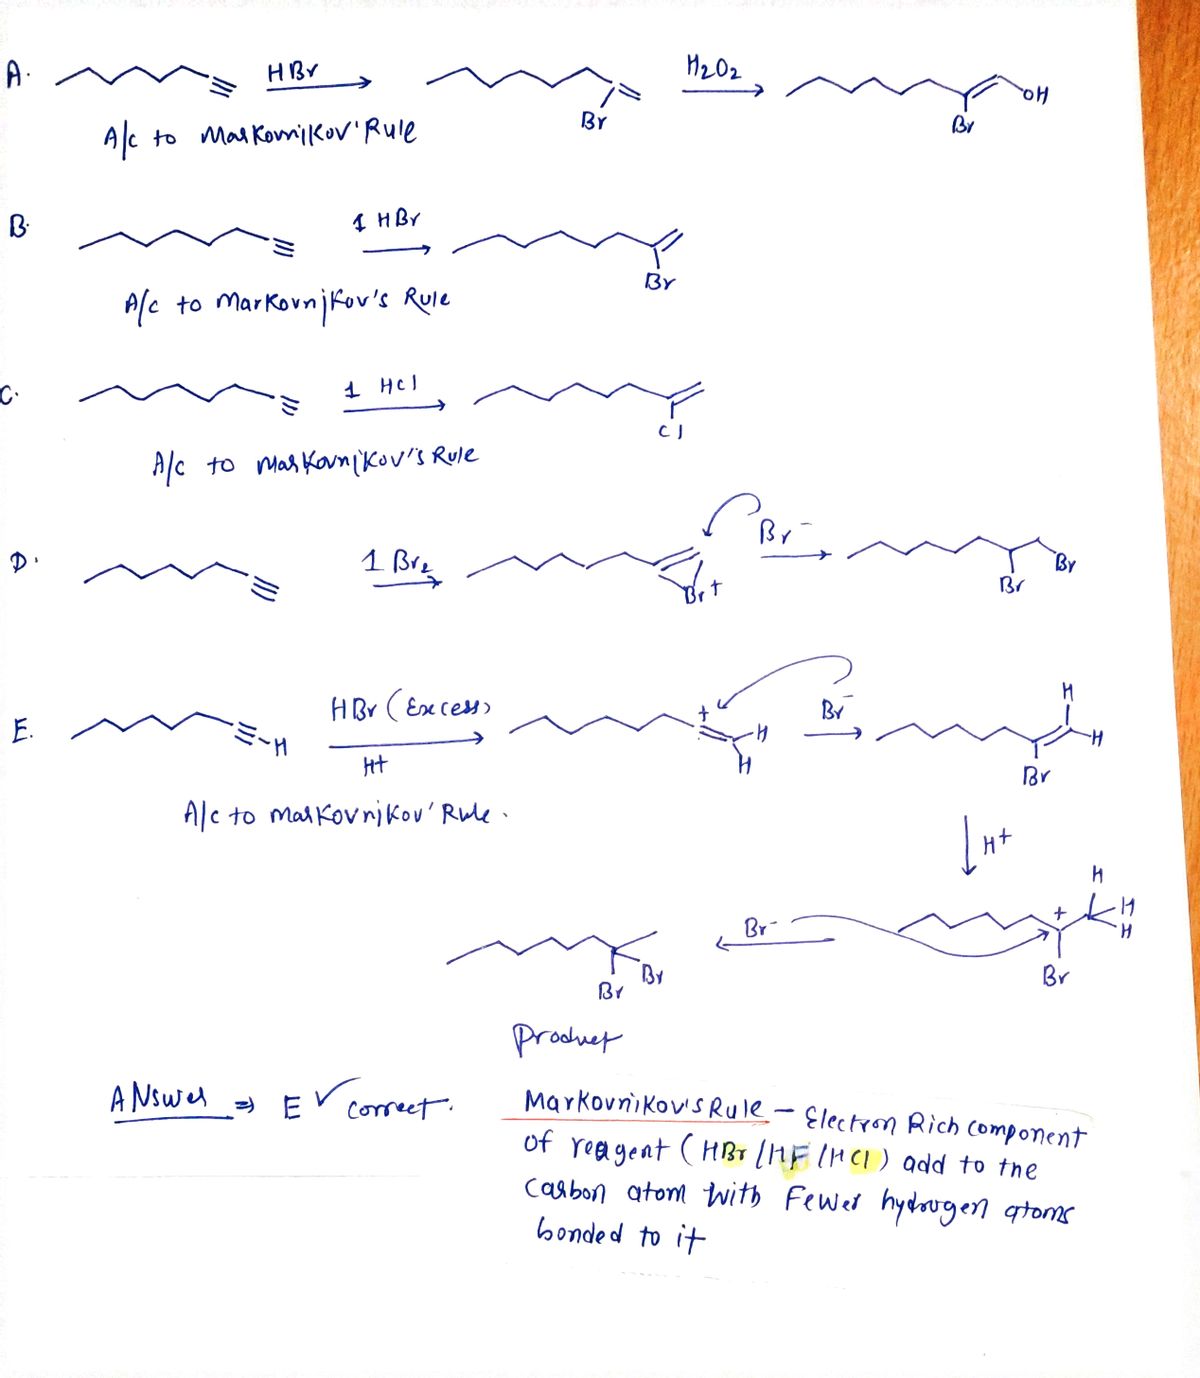 A. HBr H2O2 OH
Br Br
A/c to Markovnikov' Rule
B. 1 HBr
Br
A/c to Markovnikov's Rule
C. 1 HCl
Cl
A/c to Markovnikov's Rule
D. 1 Br2 Br-
Br+ Br Br
E. H HBr (Excess) + H Br- H
H+ H H
Br
A/c to Markovnikov' Rule.
H+
H
Br- + H
H
Br Br Br
Product
Answer ⇒ E ✓ correct.
Markovnikov's Rule - Electron Rich component
of reagent (HBr/HF/HCl) add to the
carbon atom with Fewer hydrogen atoms
bonded to it